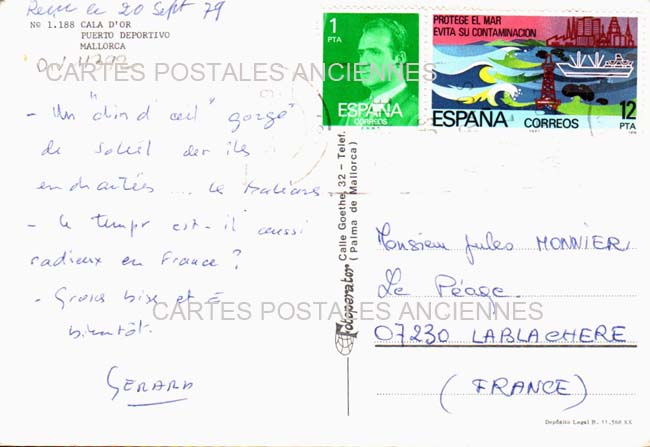 Reçu le 20 Sept 79
No 1.188 CALA D'OR
PUERTO DEPORTIVO
MALLORCA
CARTES POSTALES ANCIENNES
- Un "clin d'œil" gorgé
de soleil des îles
enchantées ... les Baléares.
- le temps est-il aussi
radieux en France ?
- Gros bise et à
bientôt.
GERARD
1
PTA
ESPAÑA
CORREOS
PROTEGE EL MAR
EVITA SU CONTAMINACION
ESPAÑA CORREOS 12
PTA
Fotoperator Calle Goethe, 32 - Telef.
(Palma de Mallorca)
Monsieur Jules MONNIER
Le Péage.
07230 LABLACHERE
(FRANCE)
CARTES POSTALES ANCIENNES
Depósito Legal B. 11.568 XX